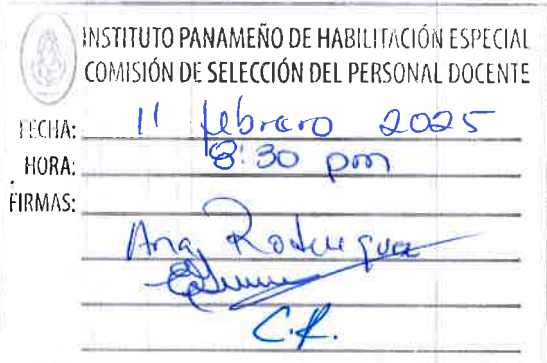 INSTITUTO PANAMEÑO DE HABILITACIÓN ESPECIAL
COMISIÓN DE SELECCIÓN DEL PERSONAL DOCENTE
FECHA: 11 febrero 2025
HORA: 8:30 pm
FIRMAS:
Ana Rodríguez
C.R.